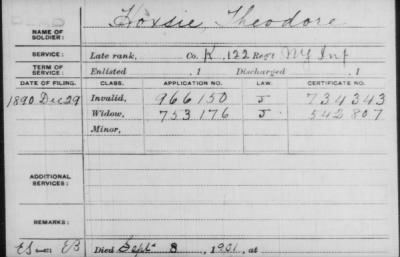 NAME OF SOLDIER: Hoxsie, Theodore
SERVICE: Late rank, Co. K, 122 Reg't NY Inf
TERM OF SERVICE: Enlisted , 1 Discharged , 1
DATE OF FILING. CLASS. APPLICATION NO. LAW. CERTIFICATE NO.
1890 Dec 29 Invalid, 966150 J 734343
Widow, 753,176 J. 542807
Minor,
ADDITIONAL SERVICES:
REMARKS:
Died Sept 8, 1901, at